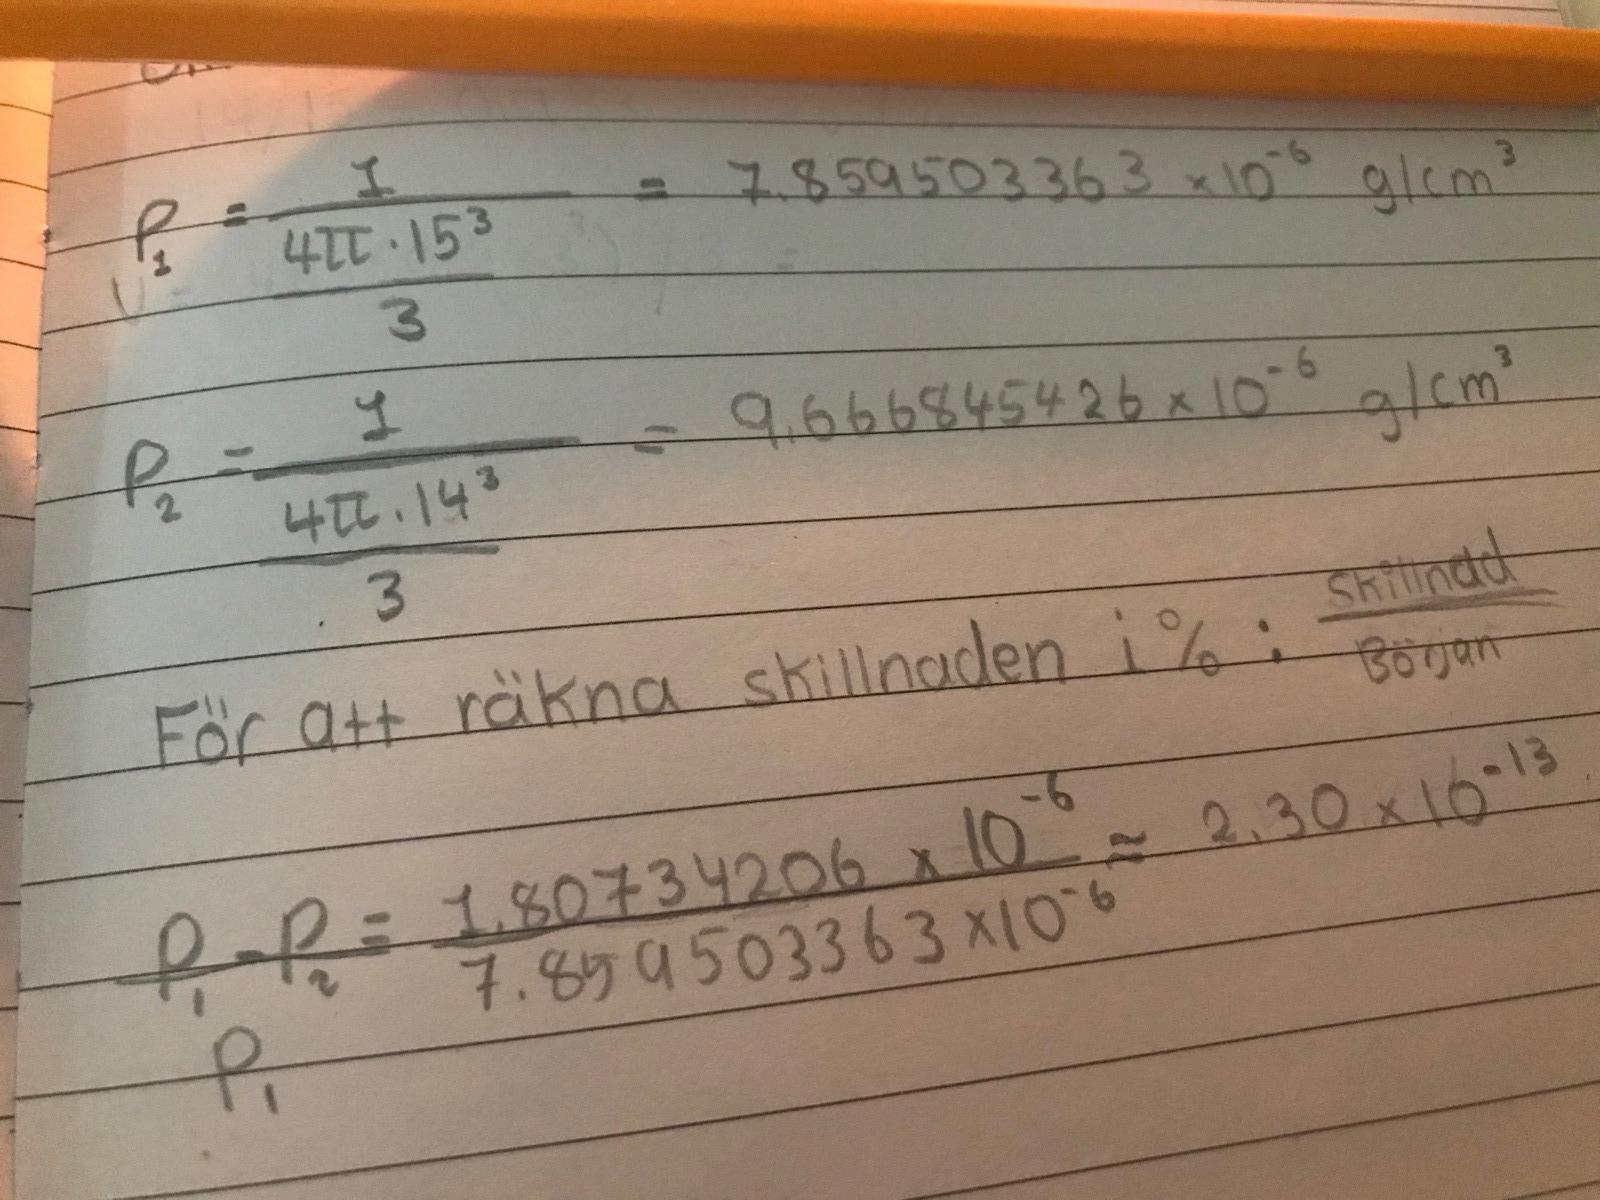 P₁ = 1 / (4π · 15³ / 3) = 7.859503363 × 10⁻⁶ g/cm³
P₂ = 1 / (4π · 14³ / 3) = 9.666845426 × 10⁻⁶ g/cm³
För att räkna skillnaden i % : Skillnad / Början
(P₁ - P₂) / P₁ = 1.80734206 × 10⁻⁶ / 7.859503363 × 10⁻⁶ ≈ 2.30 × 10⁻¹³